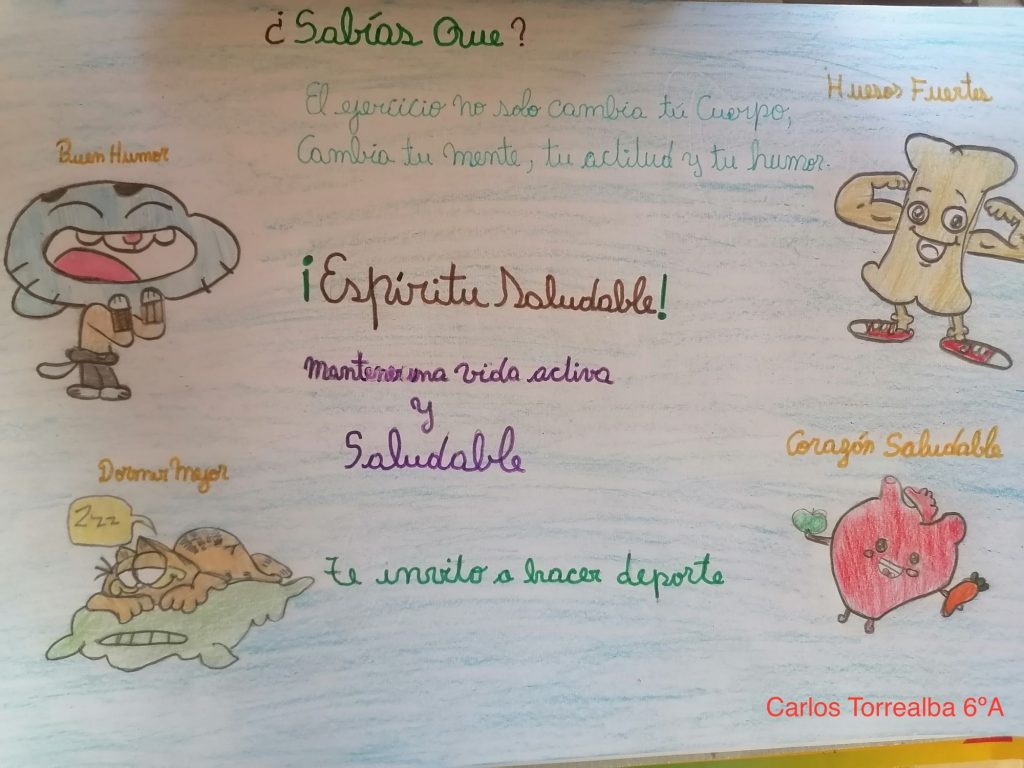 ¿Sabías Que?
El ejercicio no solo cambia tú Cuerpo,
Cambia tu mente, tu actitud y tu humor.
Huesos Fuertes
Buen Humor
¡Espíritu Saludable!
Mantener una vida activa
y
Saludable
Corazón Saludable
Dormir Mejor
Zzz
Te invito a hacer deporte
Carlos Torrealba 6ºA